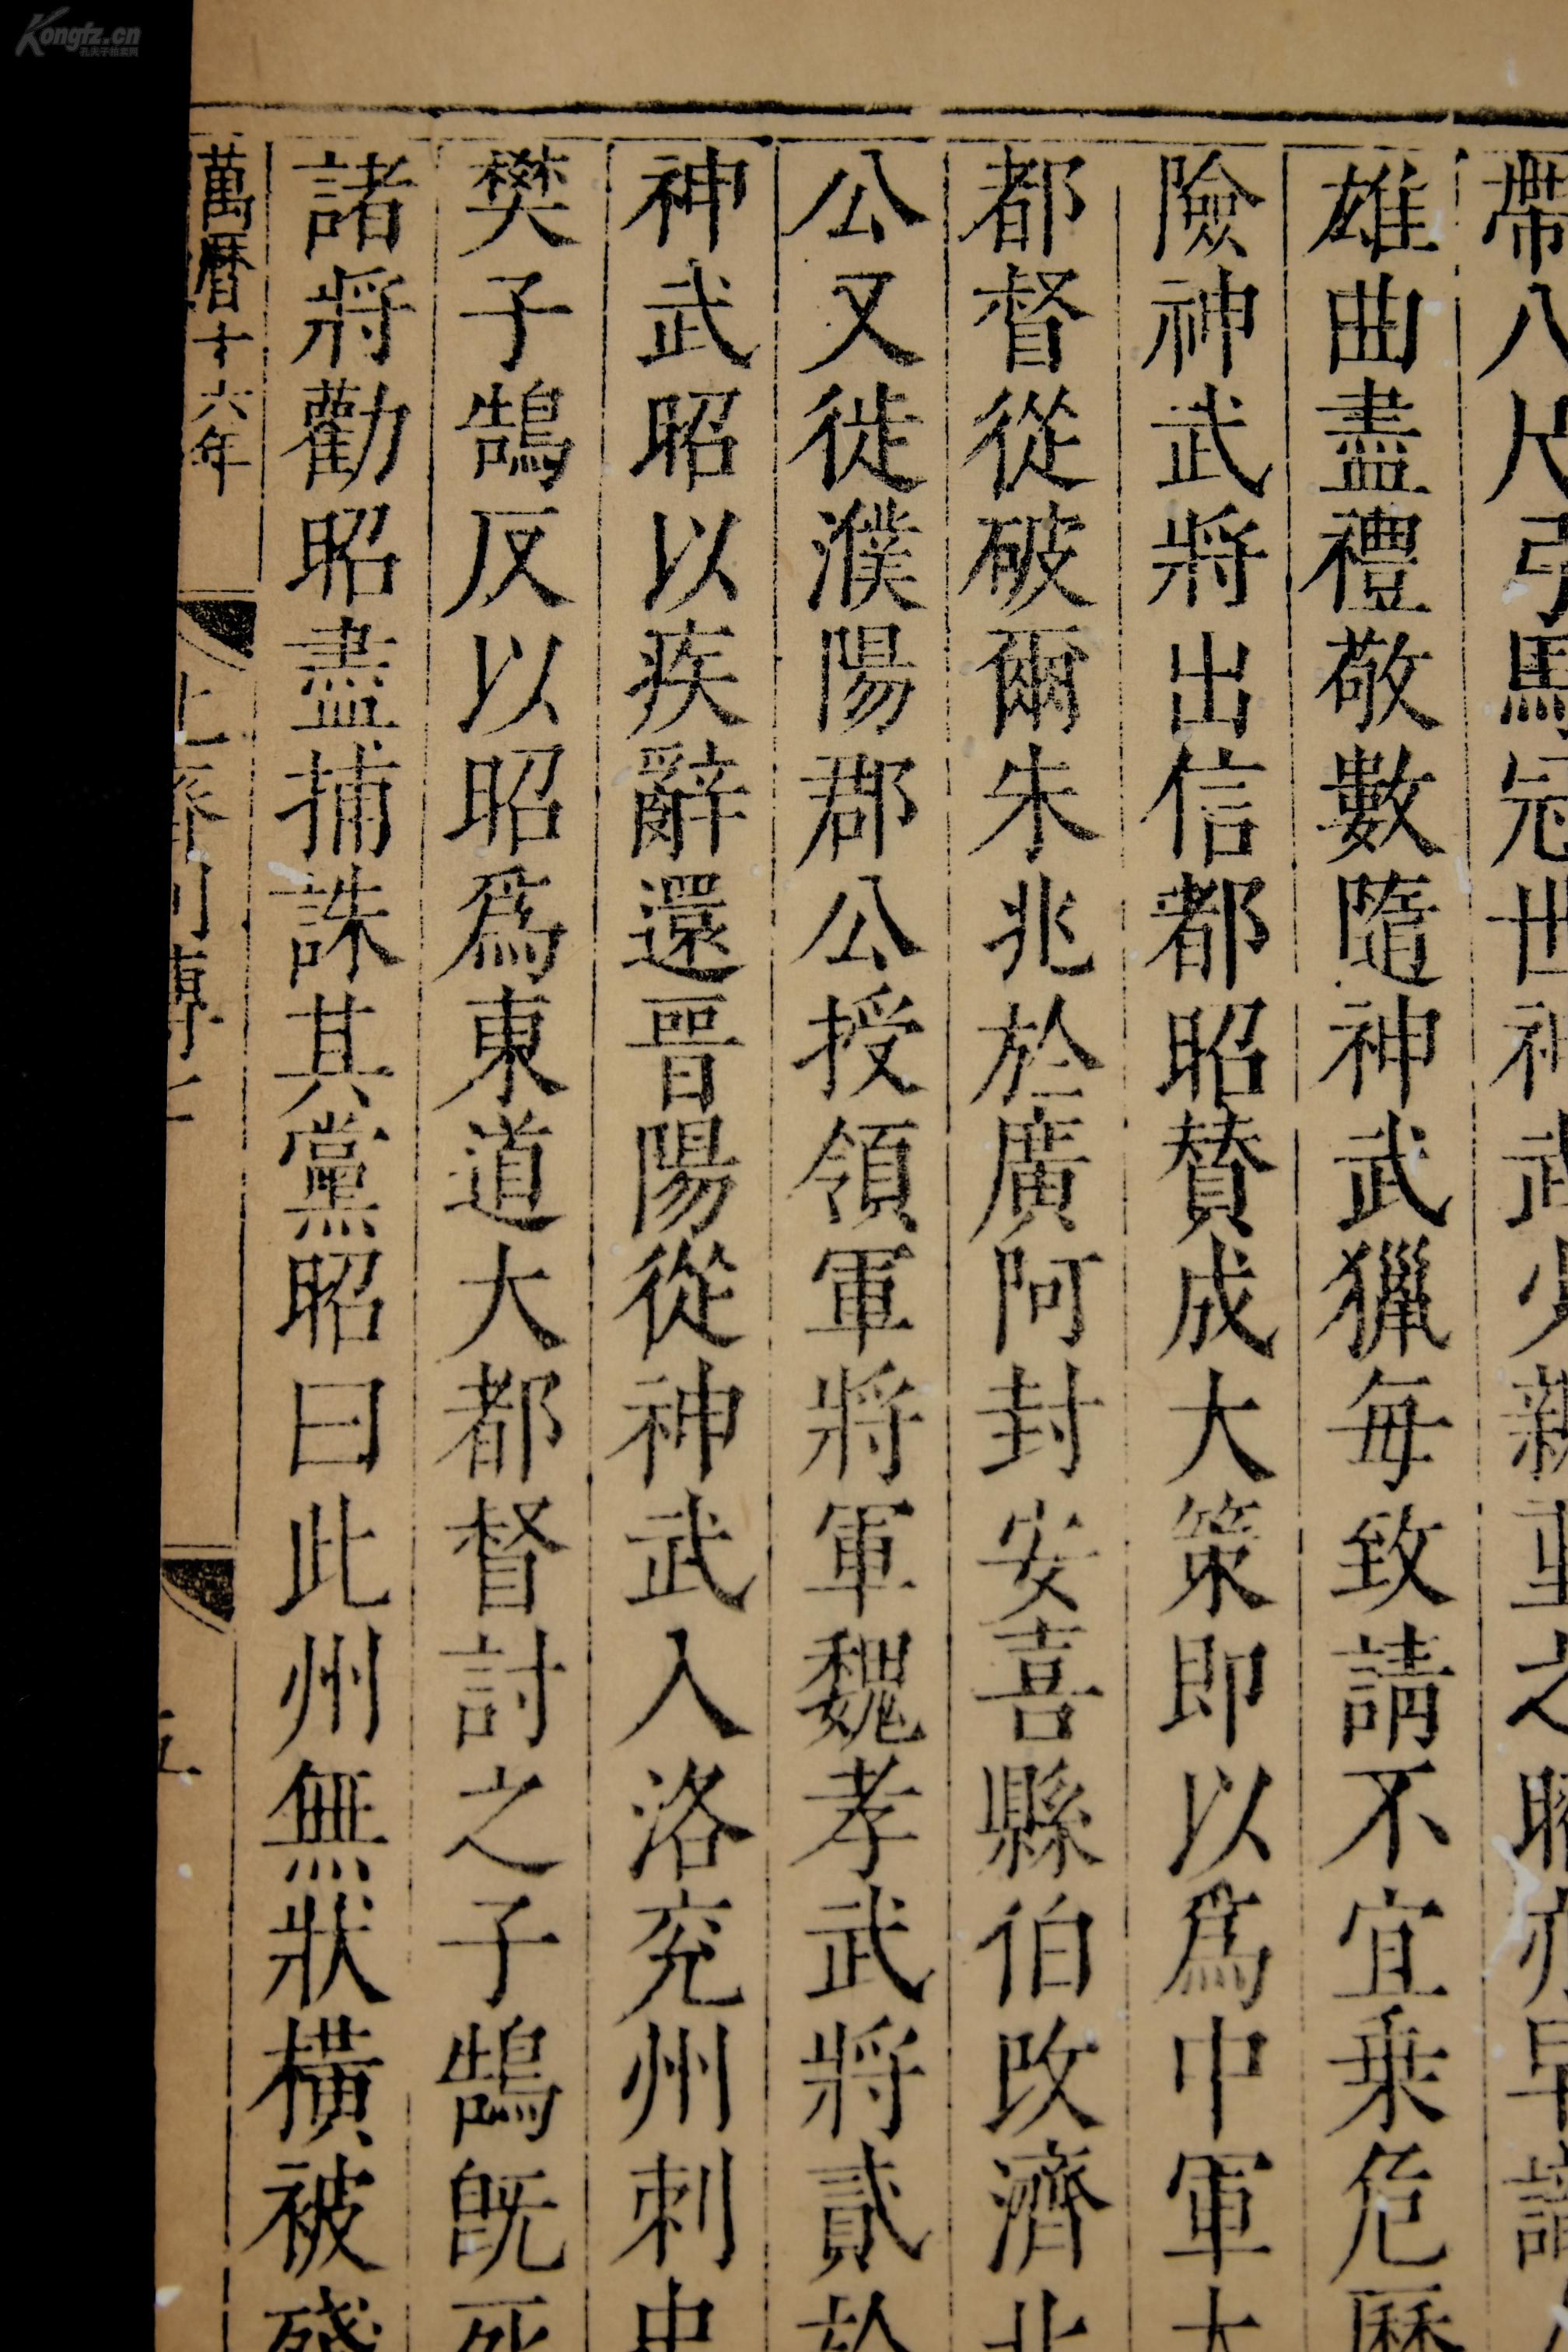 Kongfz.cn
孔夫子拍卖网
帶八尺弓馬冠世神武少親重之昭亦早識
雄曲盡禮敬數隨神武獵每致請不宜乗危歷
險神武將出信都昭賛成大策即以爲中軍大
都督從破爾朱兆於廣阿封安喜縣伯改濟北
公又徙濮陽郡公授領軍將軍魏孝武將貳於
神武昭以疾辭還晋陽從神武入洛兖州刺史
樊子鵠反以昭爲東道大都督討之子鵠旣死
諸將勸昭盡捕誅其黨昭曰此州無狀橫被殘
萬曆十六年
北齊列傳七
五